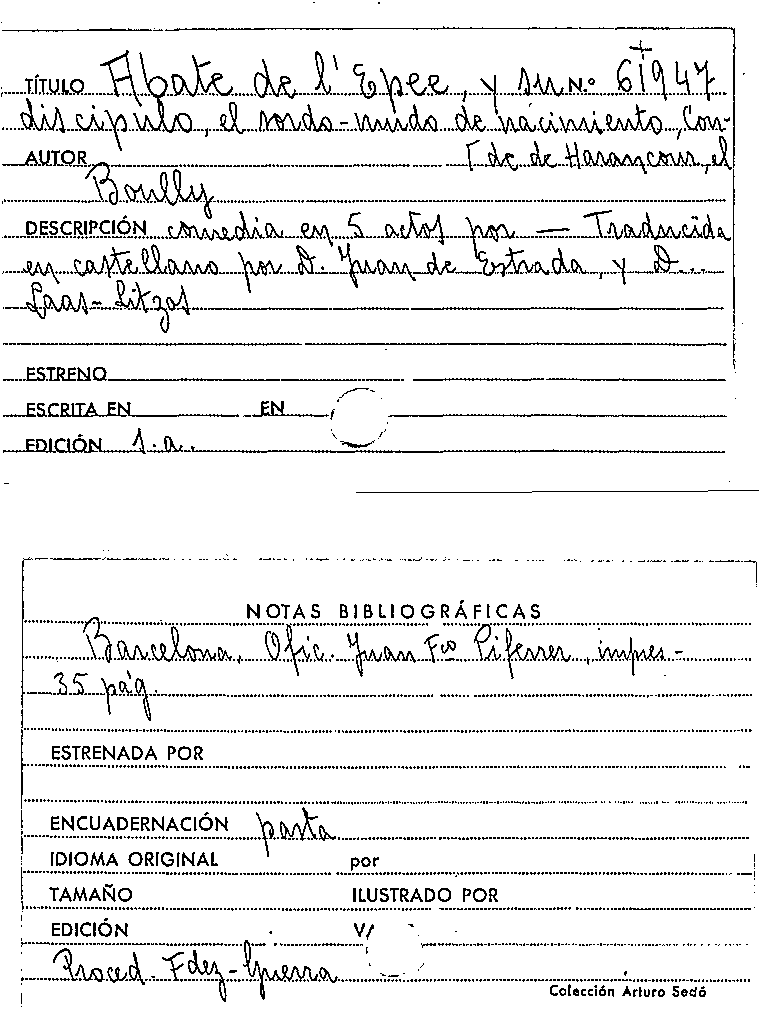 TÍTULO Abate de l'Epee, y su N.º 61947
discipulo, el sordo-mudo de nacimiento, Con-
AUTOR [de de Harancour, el
Boully
DESCRIPCIÓN comedia en 5 actos por — Traducida
en castellano por D. Juan de Estrada, y D...
Laas-Litzos
ESTRENO
ESCRITA EN EN
EDICIÓN s.a.
NOTAS BIBLIOGRÁFICAS
Barcelona, Ofic. Juan Fco Piferrer, impres-
35 pág.
ESTRENADA POR
ENCUADERNACIÓN pasta
IDIOMA ORIGINAL por
TAMAÑO ILUSTRADO POR
EDICIÓN
Proced. Fdez-Guerra
Colección Arturo Sedó